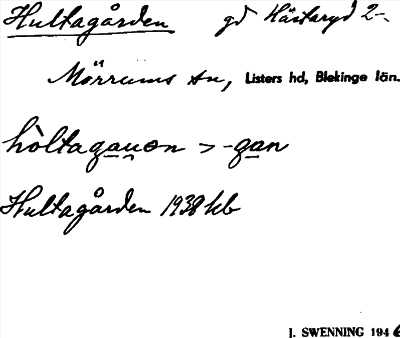 Hultagården gd Hästaryd 2-.
Mörrums sn, Listers hd, Blekinge län.
hòltaga̲u̲ɘn > -ga̲n
Hultagården 1938 kb
J. SWENNING 1946